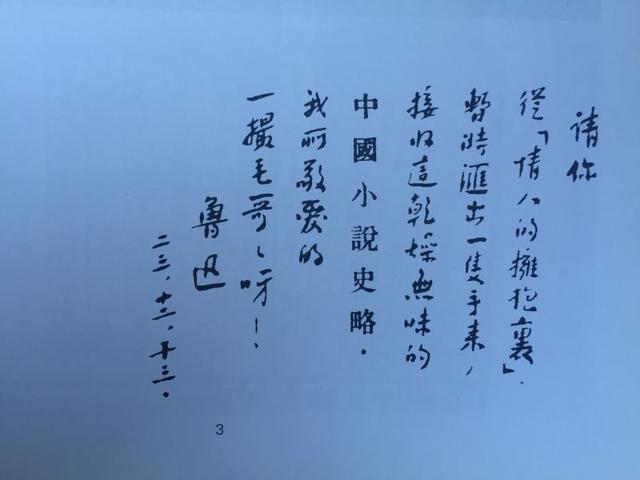 請你
從「情人的擁抱裏」,
暫時匯出一隻手來,
接收這乾燥無味的
中國小說史略.
我所敬愛的
一撮毛哥〻呀!
魯迅
二三.十二.十三.
3